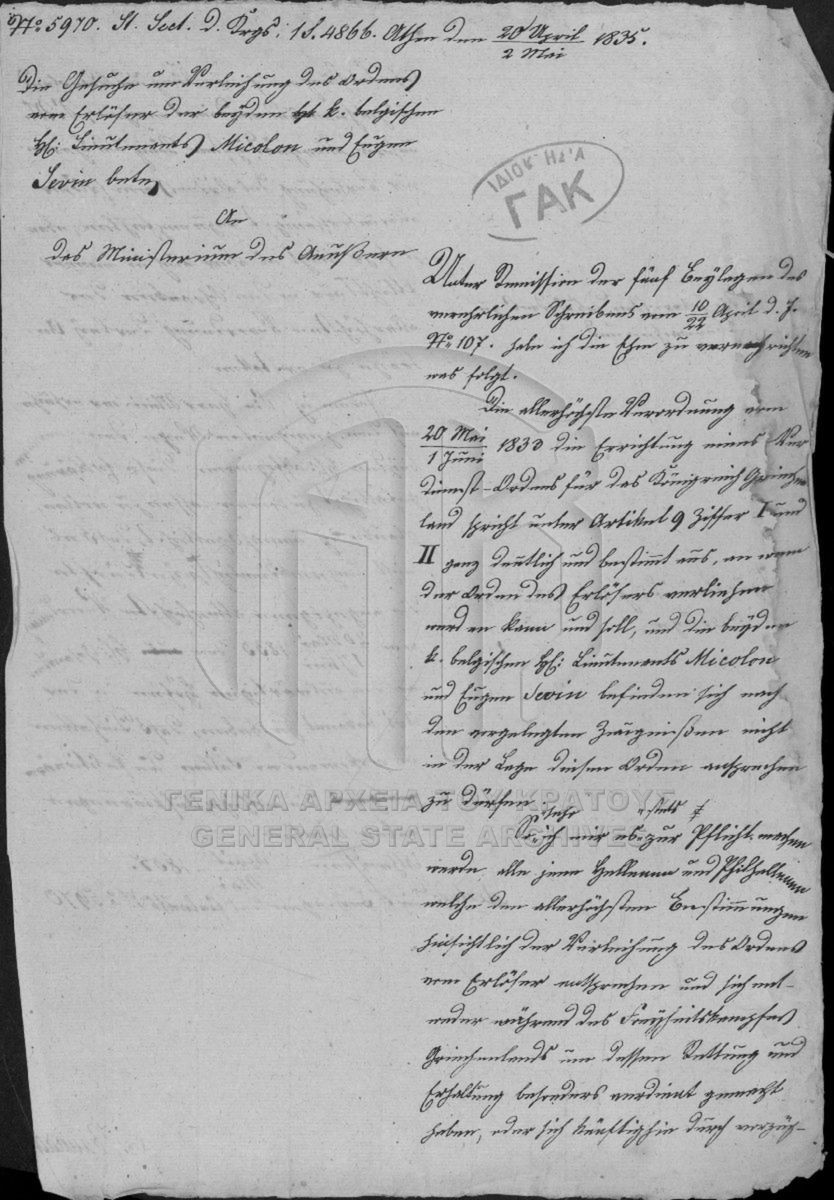 No 5970. St. Sect. d. Krgs: 1 S. 4866. Athen den 20 April / 2 Mai 1835.
Die Gesuche um Verleihung des Ordens
vom Erlöser der beyden k. belgischen
H: Lieutenants Micolon und Eugen
Sevin betr,
An
das Ministerium des Aeußern
ΙΔΙΟΚΤΗΣΙΑ
ΓΑΚ
Unter Remission der fünf Beylagen des
verehrlichen Schreibens vom 10/22 April d. J.
No 107. habe ich die Ehre zu benachrichten
was folgt.
Die allerhöchste Verordnung vom
20 Mai / 1 Juni 1833 die Errichtung eines Ver
dienst-Ordens für das Königreich Griechen
land spricht unter Artikel 9 Ziffer I und
II ganz deutlich und bestimmt aus, an wem
der Orden des Erlösers verliehen
werden kann und soll, und die beyden
k. belgischen H: Lieutenants Micolon
und Eugen Sevin befinden sich nach
den vorgelegten Zeugnißen nicht
in der Lage diesen Orden ansprechen
zu dürfen.
So sehr ich mir es stets zur Pflicht machen
werde, alle jene Hellenen und Philhellenen
welche den allerhöchsten Bestimmungen
hinsichtlich der Verleihung des Ordens
vom Erlöser entsprechen und sich ent-
weder während des Freyheitskampfes
Griechenlands um dessen Rettung und
Erhaltung besonders verdient gemacht
haben, oder sich künftighin durch vorzüg-
ΓΕΝΙΚΑ ΑΡΧΕΙΑ ΤΟΥ ΚΡΑΤΟΥΣ
GENERAL STATE ARCHIVES